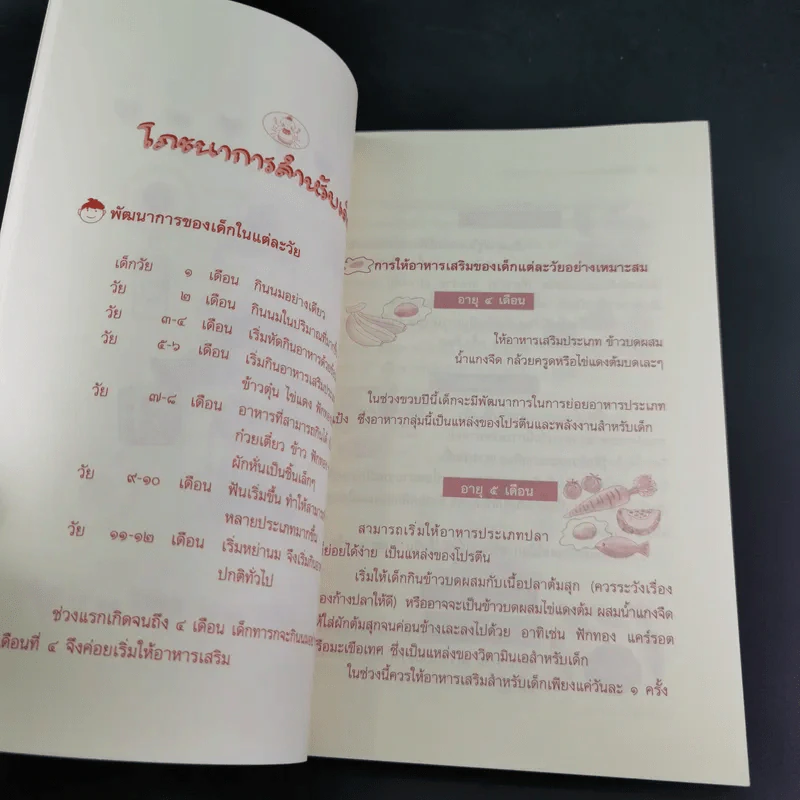 โภชนาการสำหรับ
พัฒนาการของเด็กในแต่ละวัย
เด็กวัย ๑ เดือน กินนมอย่างเดียว
วัย ๒ เดือน กินนมในปริมาณที่มากขึ้น
วัย ๓-๔ เดือน เริ่มหัดกินอาหารด้วยช้อน
วัย ๕-๖ เดือน เริ่มกินอาหารเสริม
ข้าวตุ๋น ไข่แดง ฟักทอง
วัย ๗-๘ เดือน อาหารที่สามารถกินได้
ก๋วยเตี๋ยว ข้าว ฟักทอง
ผักหั่นเป็นชิ้นเล็กๆ
วัย ๙-๑๐ เดือน ฟันเริ่มขึ้น ทำให้สามารถ
หลายประเภทมากขึ้น
วัย ๑๑-๑๒ เดือน เริ่มหย่านม จึงเริ่มกิน
ปกติทั่วไป
ช่วงแรกเกิดจนถึง ๔ เดือน เด็กทารกจะกินนม
เดือนที่ ๔ จึงค่อยเริ่มให้อาหารเสริม
การให้อาหารเสริมของเด็กแต่ละวัยอย่างเหมาะสม
อายุ ๔ เดือน
ให้อาหารเสริมประเภท ข้าวบดผสม
น้ำแกงจืด กล้วยครูดหรือไข่แดงต้มบดเละๆ
ในช่วงขวบปีนี้เด็กจะมีพัฒนาการในการย่อยอาหารประเภท
แป้ง ซึ่งอาหารกลุ่มนี้เป็นแหล่งของโปรตีนและพลังงานสำหรับเด็ก
อายุ ๕ เดือน
สามารถเริ่มให้อาหารประเภทปลา
ที่ย่อยได้ง่าย เป็นแหล่งของโปรตีน
เริ่มให้เด็กกินข้าวบดผสมกับเนื้อปลาต้มสุก (ควรระวังเรื่อง
ของก้างปลาให้ดี) หรืออาจจะเป็นข้าวบดผสมไข่แดงต้ม ผสมน้ำแกงจืด
ให้ใส่ผักต้มสุกจนค่อนข้างเละลงไปด้วย อาทิเช่น ฟักทอง แคร์รอต
หรือมะเขือเทศ ซึ่งเป็นแหล่งของวิตามินเอสำหรับเด็ก
ในช่วงนี้ควรให้อาหารเสริมสำหรับเด็กเพียงแค่วันละ ๑ ครั้ง